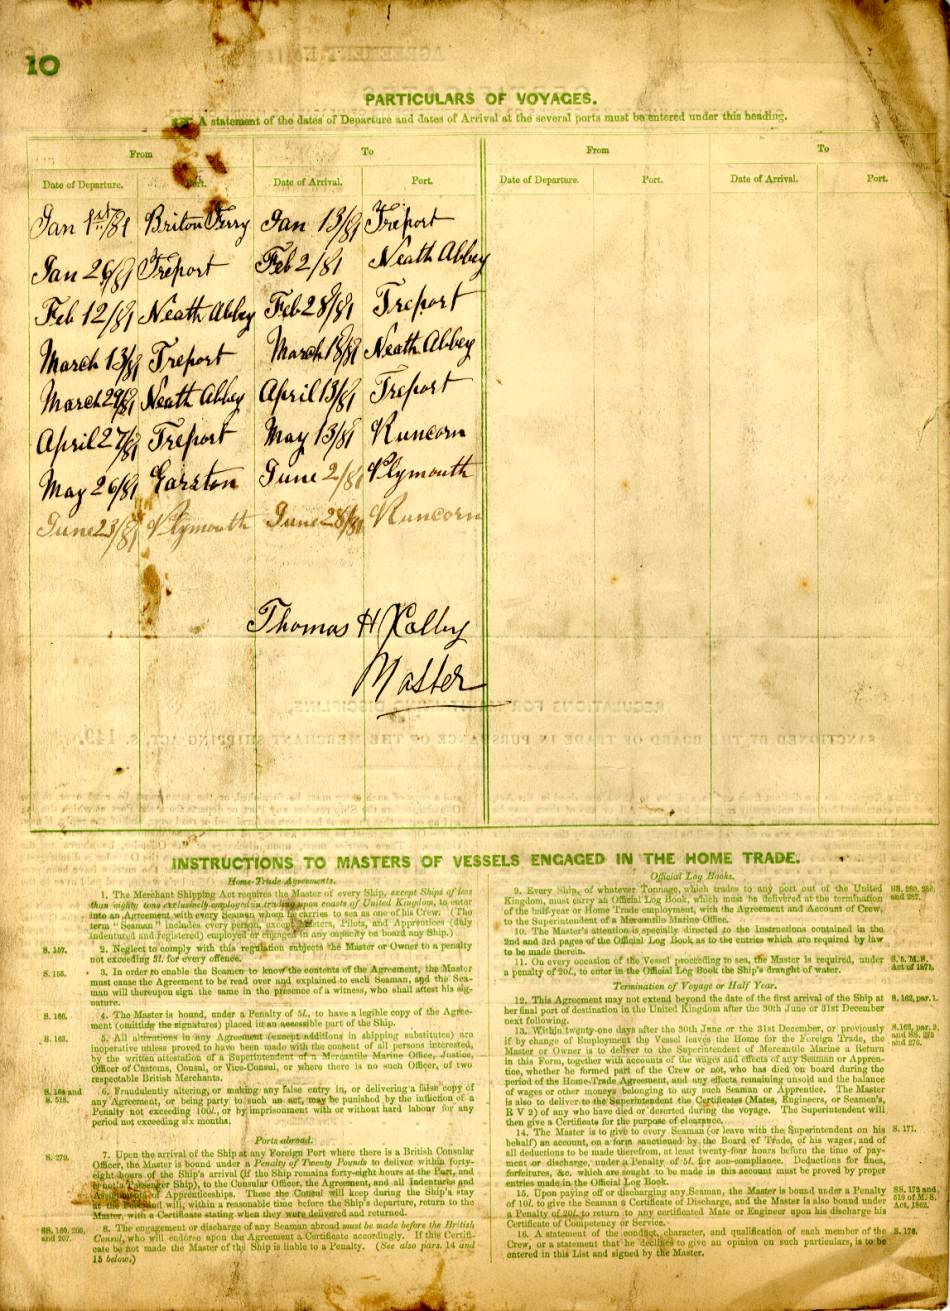 10
PARTICULARS OF VOYAGES.
A statement of the dates of Departure and dates of Arrival at the several ports must be entered under this heading.
From To From To
Date of Departure. Port. Date of Arrival. Port. Date of Departure. Port. Date of Arrival. Port.
Jan 1st/81 Briton Ferry Jan 13/81 Treport
Jan 26/81 Treport Feb 2/81 Neath Abbey
Feb 12/81 Neath Abbey Feb 28/81 Treport
March 13/81 Treport March 18/81 Neath Abbey
March 29/81 Neath Abbey April 13/81 Treport
April 27/81 Treport May 13/81 Runcorn
May 26/81 Garston June 2/81 Plymouth
June 23/81 Plymouth June 28/81 Runcorn
Thomas H
Master
REGULATIONS FOR MAINTAINING DISCIPLINE,
SANCTIONED BY THE BOARD OF TRADE IN PURSUANCE OF THE MERCHANT SHIPPING ACT, S. 149.
INSTRUCTIONS TO MASTERS OF VESSELS ENGAGED IN THE HOME TRADE.
Home-Trade Agreements.
1. The Merchant Shipping Act requires the Master of every Ship, except Ships of less
than eighty tons exclusively employed in trading upon coasts of United Kingdom, to enter
into an Agreement with every Seaman whom he carries to sea as one of his Crew. (The
term "Seaman" includes every person, except Masters, Pilots, and Apprentices (duly
indentured and registered) employed or engaged in any capacity on board any Ship.)
S. 157. 2. Neglect to comply with this regulation subjects the Master or Owner to a penalty
not exceeding 5l. for every offence.
S. 155. 3. In order to enable the Seamen to know the contents of the Agreement, the Master
must cause the Agreement to be read over and explained to each Seaman, and the Sea-
man will thereupon sign the same in the presence of a witness, who shall attest his sig-
nature.
S. 166. 4. The Master is bound, under a Penalty of 5l., to have a legible copy of the Agree-
ment (omitting the signatures) placed in an accessible part of the Ship.
S. 163. 5. All alterations in any Agreement (except additions in shipping substitutes) are
inoperative unless proved to have been made with the consent of all persons interested,
by the written attestation of a Superintendent of a Mercantile Marine Office, Justice,
Officer of Customs, Consul, or Vice-Consul, or where there is no such Officer, of two
respectable British Merchants.
S. 164 and S. 518. 6. Fraudently altering, or making any false entry in, or delivering a false copy of
any Agreement, or being party to such an act, may be punished by the infliction of a
Penalty not exceeding 100l., or by imprisonment with or without hard labour for any
period not exceeding six months.
Ports abroad.
S. 279. 7. Upon the arrival of the Ship at any Foreign Port where there is a British Consular
Officer, the Master is bound under a Penalty of Twenty Pounds to deliver within forty-
eight hours of the Ship's arrival (if the Ship remains forty-eight hours at the Port, and
is not a Passenger Ship), to the Consular Officer, the Agreement, and all Indentures and
Assignments of Apprenticeships. These the Consul will keep during the Ship's stay
at the Port and will, within a reasonable time before the Ship's departure, return to the
Master, with a Certificate stating when they were delivered and returned.
SS. 160, 206, and 207. 8. The engagement or discharge of any Seaman abroad must be made before the British
Consul, who will endorse upon the Agreement a Certificate accordingly. If this Certifi-
cate be not made the Master of the Ship is liable to a Penalty. (See also pars. 14 and
15 below.)
Official Log Books.
9. Every Ship, of whatever Tonnage, which trades to any port out of the United
Kingdom, must carry an Official Log Book, which must be delivered at the termination
of the half-year or Home Trade employment, with the Agreement and Account of Crew,
to the Superintendent of Mercantile Marine Office.
10. The Master's attention is specially directed to the Instructions contained in the
2nd and 3rd pages of the Official Log Book as to the entries which are required by law
to be made therein.
11. On every occasion of the Vessel proceeding to sea, the Master is required, under S. 5, M. S.
a penalty of 20l., to enter in the Official Log Book the Ship's draught of water. Act of 1871.
Termination of Voyage or Half Year.
12. This Agreement may not extend beyond the date of the first arrival of the Ship at S. 162, par. 1.
her final port of destination in the United Kingdom after the 30th June or 31st December
next following.
13. Within twenty-one days after the 30th June or the 31st December, or previously S. 162, par. 2,
if by change of Employment the Vessel leaves the Home for the Foreign Trade, the and SS. 275
Master or Owner is to deliver to the Superintendent of Mercantile Marine a Return and 276.
in this Form, together with accounts of the wages and effects of any Seaman or Appren-
tice, whether he formed part of the Crew or not, who has died on board during the
period of the Home-Trade Agreement, and any effects remaining unsold and the balance
of wages or other moneys belonging to any such Seaman or Apprentice. The Master
is also to deliver to the Superintendent the Certificates (Mates, Engineers, or Seamen's,
R V 2) of any who have died or deserted during the voyage. The Superintendent will
then give a Certificate for the purpose of clearance.
14. The Master is to give to every Seaman (or leave with the Superintendent on his S. 171.
behalf) an account, on a form sanctioned by the Board of Trade, of his wages, and of
all deductions to be made therefrom, at least twenty-four hours before the time of pay-
ment or discharge, under a Penalty of 5l. for non-compliance. Deductions for fines,
forfeitures, &c. which are sought to be made in this account must be proved by proper
entries made in the Official Log Book.
15. Upon paying off or discharging any Seaman, the Master is bound under a Penalty SS. 172 and
of 10l. to give the Seaman a Certificate of Discharge, and the Master is also bound under
a Penalty of 20l. to return to any certificated Mate or Engineer upon his discharge his Act, 1862.
Certificate of Competency or Service.
16. A statement of the conduct, character, and qualification of each member of the S. 176.
Crew, or a statement that he declines to give an opinion on such particulars, is to be
entered in this List and signed by the Master.